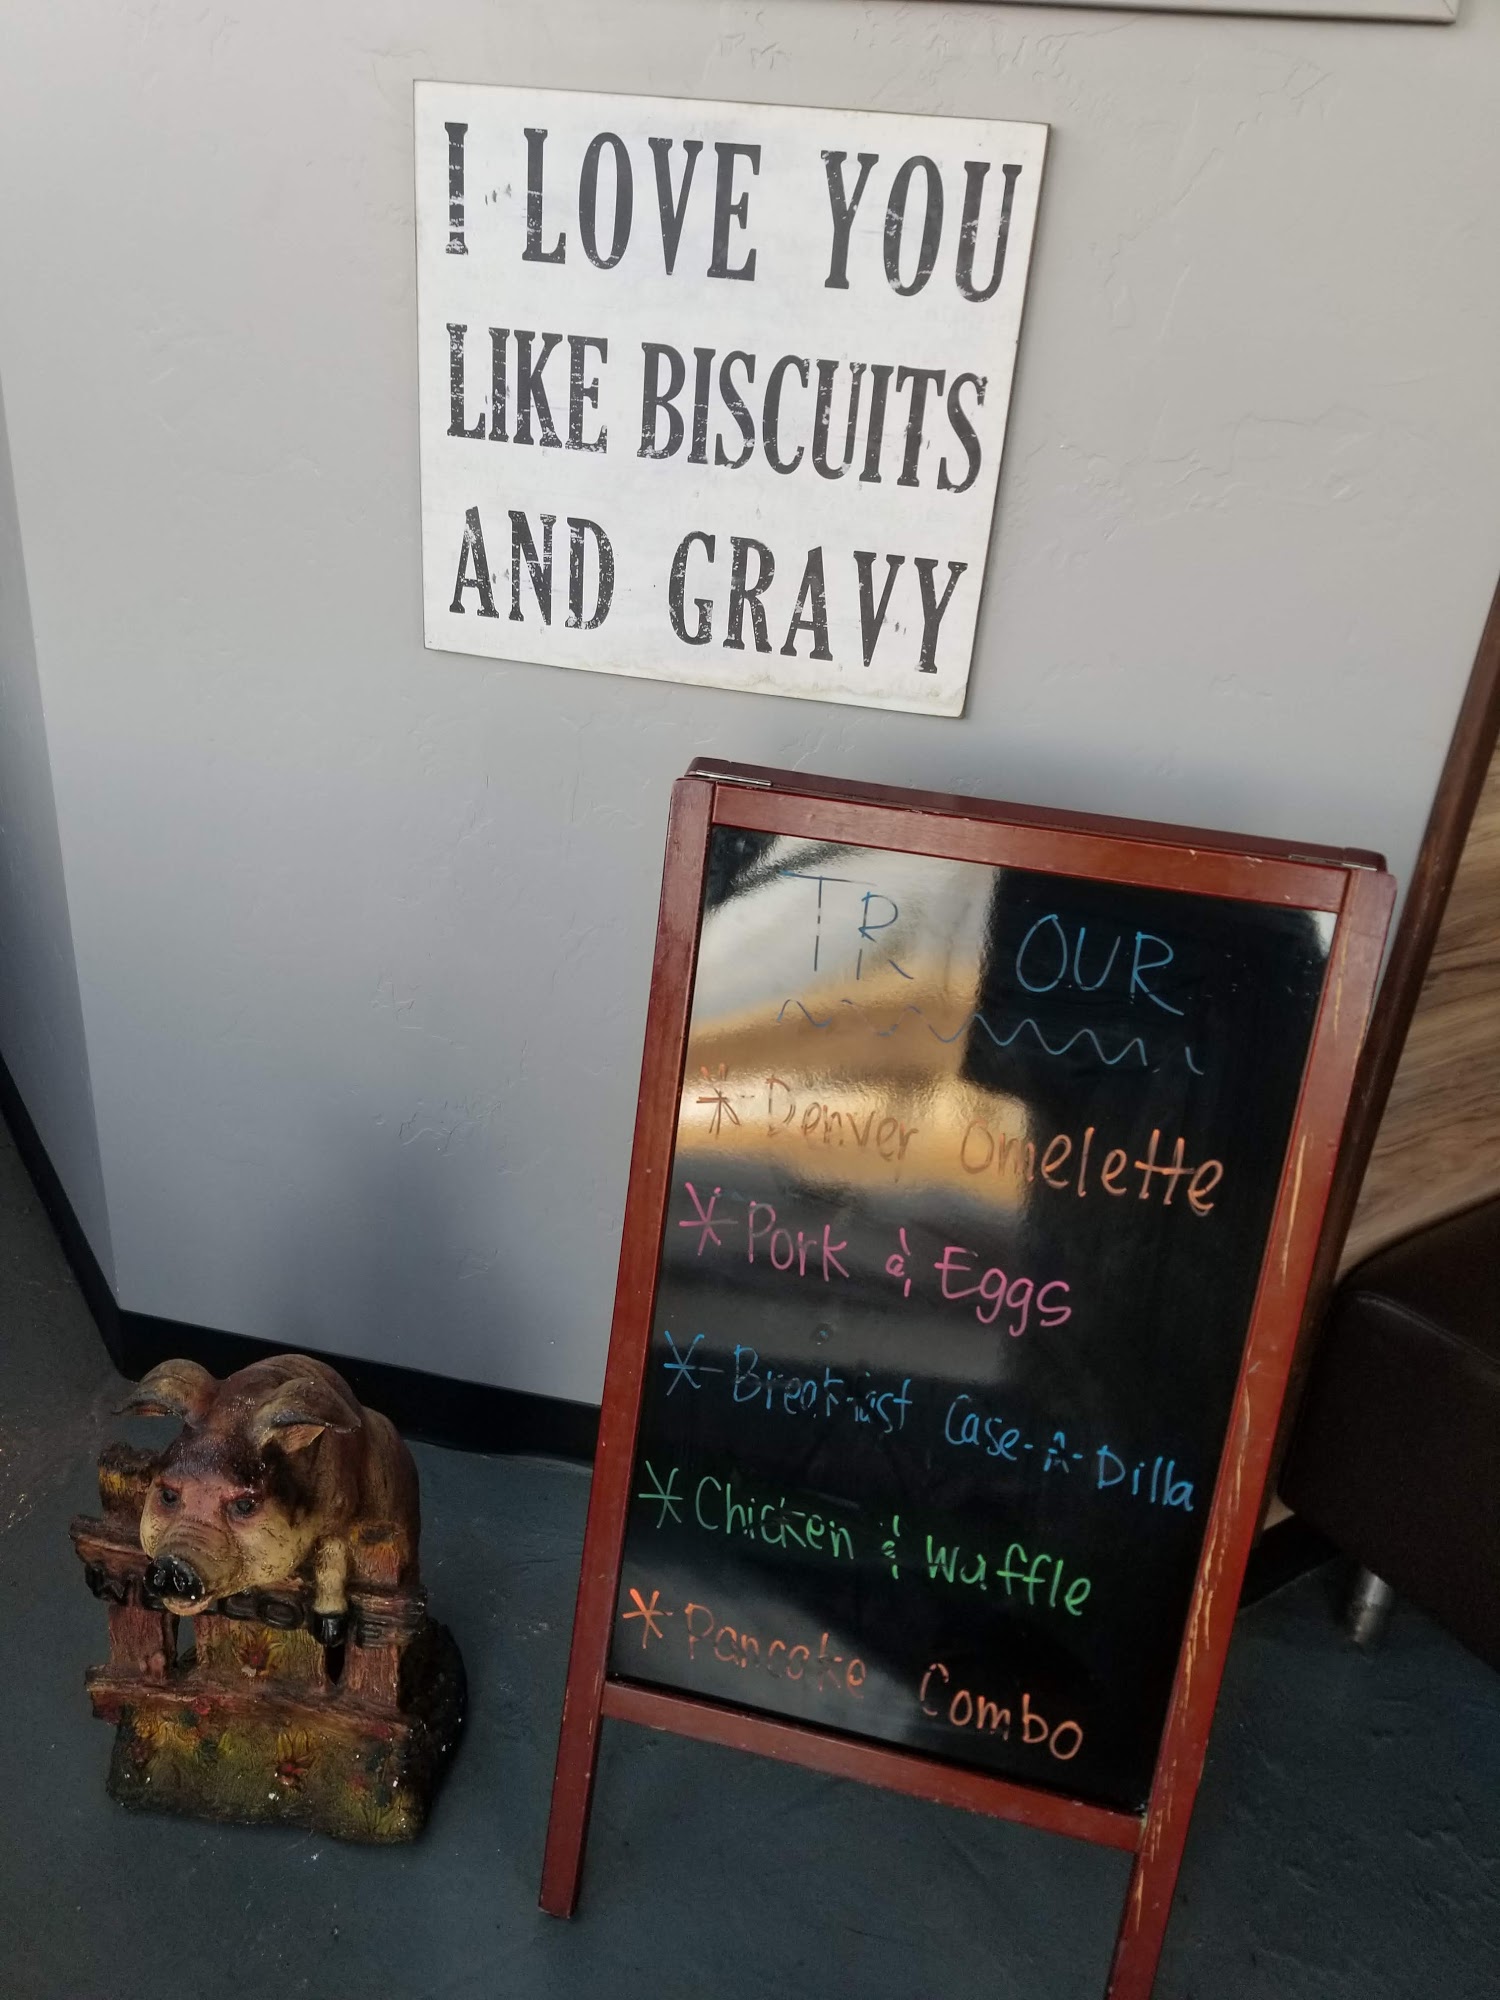 I LOVE YOU
LIKE BISCUITS
AND GRAVY
TR OUR
* Denver Omelette
* Pork & Eggs
* Breakfast Case-A-Dilla
* Chicken & Waffle
* Pancake Combo